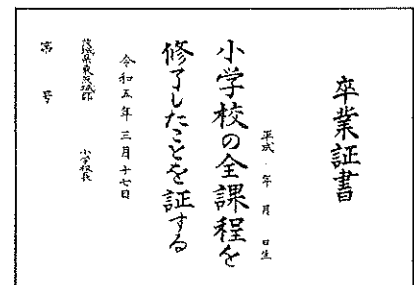 卒業証書
平成 年 月 日生
小学校の全課程を
修了したことを証する
令和五年三月十七日
茨城県東茨城郡 小学校長
第 号